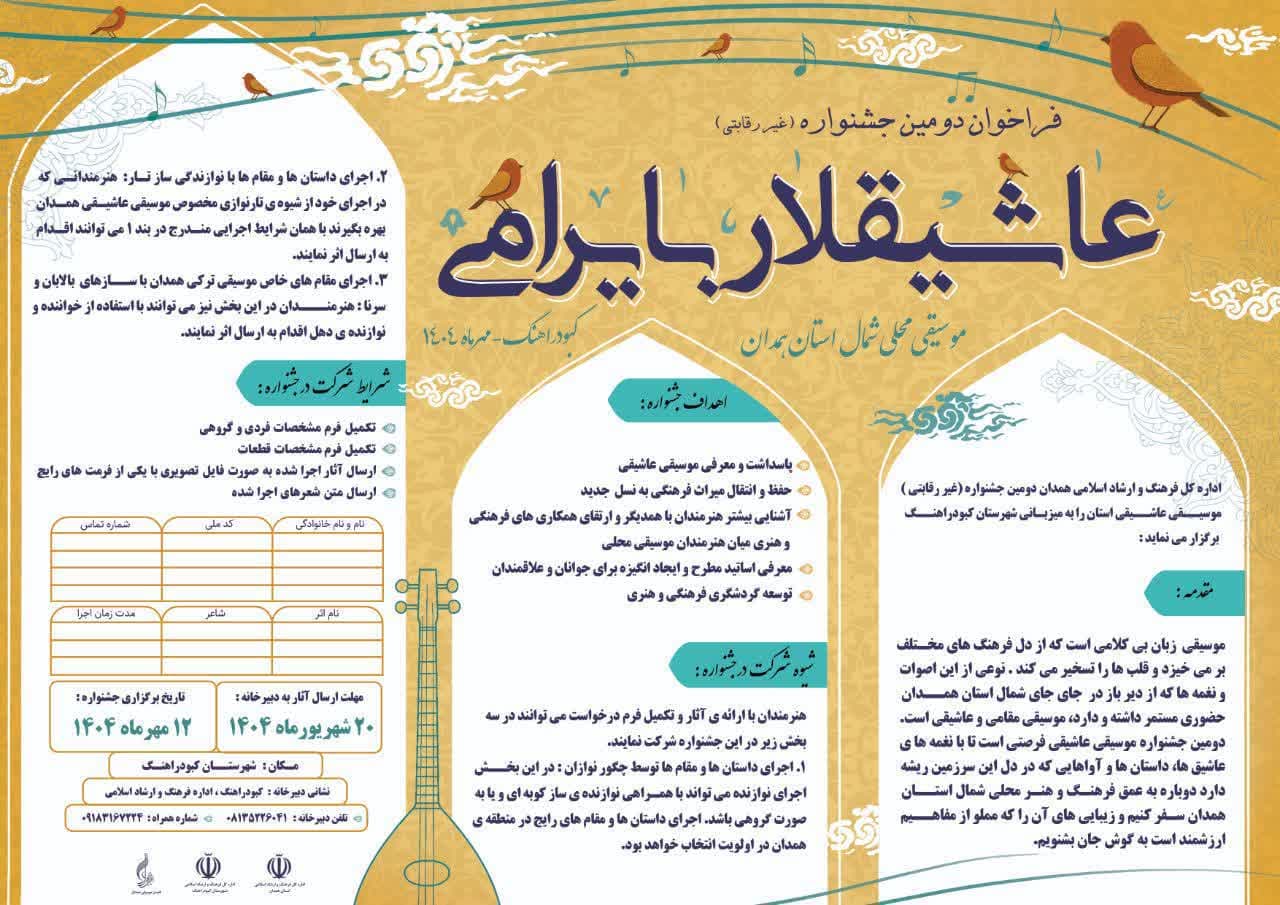 فراخوان دومین جشنواره (غیر رقابتی)
عاشیقلار بایرامی
موسیقی محلی شمال استان همدان
کبودراهنگ - مهرماه ۱۴۰۴
اداره کل فرهنگ و ارشاد اسلامی همدان دومین جشنواره (غیر رقابتی )
موسیقی عاشیقی استان را به میزبانی شهرستان کبودراهنگ
برگزار می نماید :
مقدمه :
موسیقی زبان بی کلامی است که از دل فرهنگ های مختلف
بر می خیزد و قلب ها را تسخیر می کند . نوعی از این اصوات
و نغمه ها که از دیر باز در جای جای شمال استان همدان
حضوری مستمر داشته و دارد، موسیقی مقامی و عاشیقی است.
دومین جشنواره موسیقی عاشیقی فرصتی است تا با نغمه ها ی
عاشیق ها، داستان ها و آواهایی که در دل این سرزمین ریشه
دارد دوباره به عمق فرهنگ و هنر محلی شمال استان
همدان سفر کنیم و زیبایی های آن را که مملو از مفاهیم
ارزشمند است به گوش جان بشنویم.
اهداف جشنواره :
پاسداشت و معرفی موسیقی عاشیقی
حفظ و انتقال میراث فرهنگی به نسل جدید
آشنایی بیشتر هنرمندان با همدیگر و ارتقای همکاری های فرهنگی
و هنری میان هنرمندان موسیقی محلی
معرفی اساتید مطرح و ایجاد انگیزه برای جوانان و علاقمندان
توسعه گردشگری فرهنگی و هنری
شیوه شرکت در جشنواره :
هنرمندان با ارائه ی آثار و تکمیل فرم درخواست می توانند در سه
بخش زیر در این جشنواره شرکت نمایند.
۱. اجرای داستان ها و مقام ها توسط چگور نوازان : در این بخش
اجرای نوازنده می تواند با همراهی نوازنده ی ساز کوبه ای و یا به
صورت گروهی باشد. اجرای داستان ها و مقام های رایج در منطقه ی
همدان در اولویت انتخاب خواهد بود.
۲. اجرای داستان ها و مقام ها با نوازندگی ساز تار: هنرمندانی که
در اجرای خود از شیوه ی تارنوازی مخصوص موسیقی عاشیقی همدان
بهره بگیرند با همان شرایط اجرایی مندرج در بند ۱ می توانند اقدام
به ارسال اثر نمایند.
۳. اجرای مقام های خاص موسیقی ترکی همدان با سازهای بالابان و
سرنا : هنرمندان در این بخش نیز می توانند با استفاده از خواننده و
نوازنده ی دهل اقدام به ارسال اثر نمایند.
شرایط شرکت در جشنواره :
تکمیل فرم مشخصات فردی و گروهی
تکمیل فرم مشخصات قطعات
ارسال آثار اجرا شده به صورت فایل تصویری با یکی از فرمت های رایج
ارسال متن شعرهای اجرا شده
نام و نام خانوادگی کد ملی شماره تماس
نام اثر شاعر مدت زمان اجرا
مهلت ارسال آثار به دبیرخانه :
۲۰ شهریور ماه ۱۴۰۴
تاریخ برگزاری جشنواره :
۱۲ مهر ماه ۱۴۰۴
مکان : شهرستان کبودراهنگ
نشانی دبیرخانه : کبودراهنگ ، اداره فرهنگ و ارشاد اسلامی
تلفن دبیرخانه : ۰۸۱۳۵۲۲۶۰۴۱ شماره همراه : ۰۹۱۸۳۱۶۷۲۲۴
اداره کل فرهنگ و ارشاد اسلامی
استان همدان
اداره کل فرهنگ و ارشاد اسلامی
شهرستان کبودراهنگ